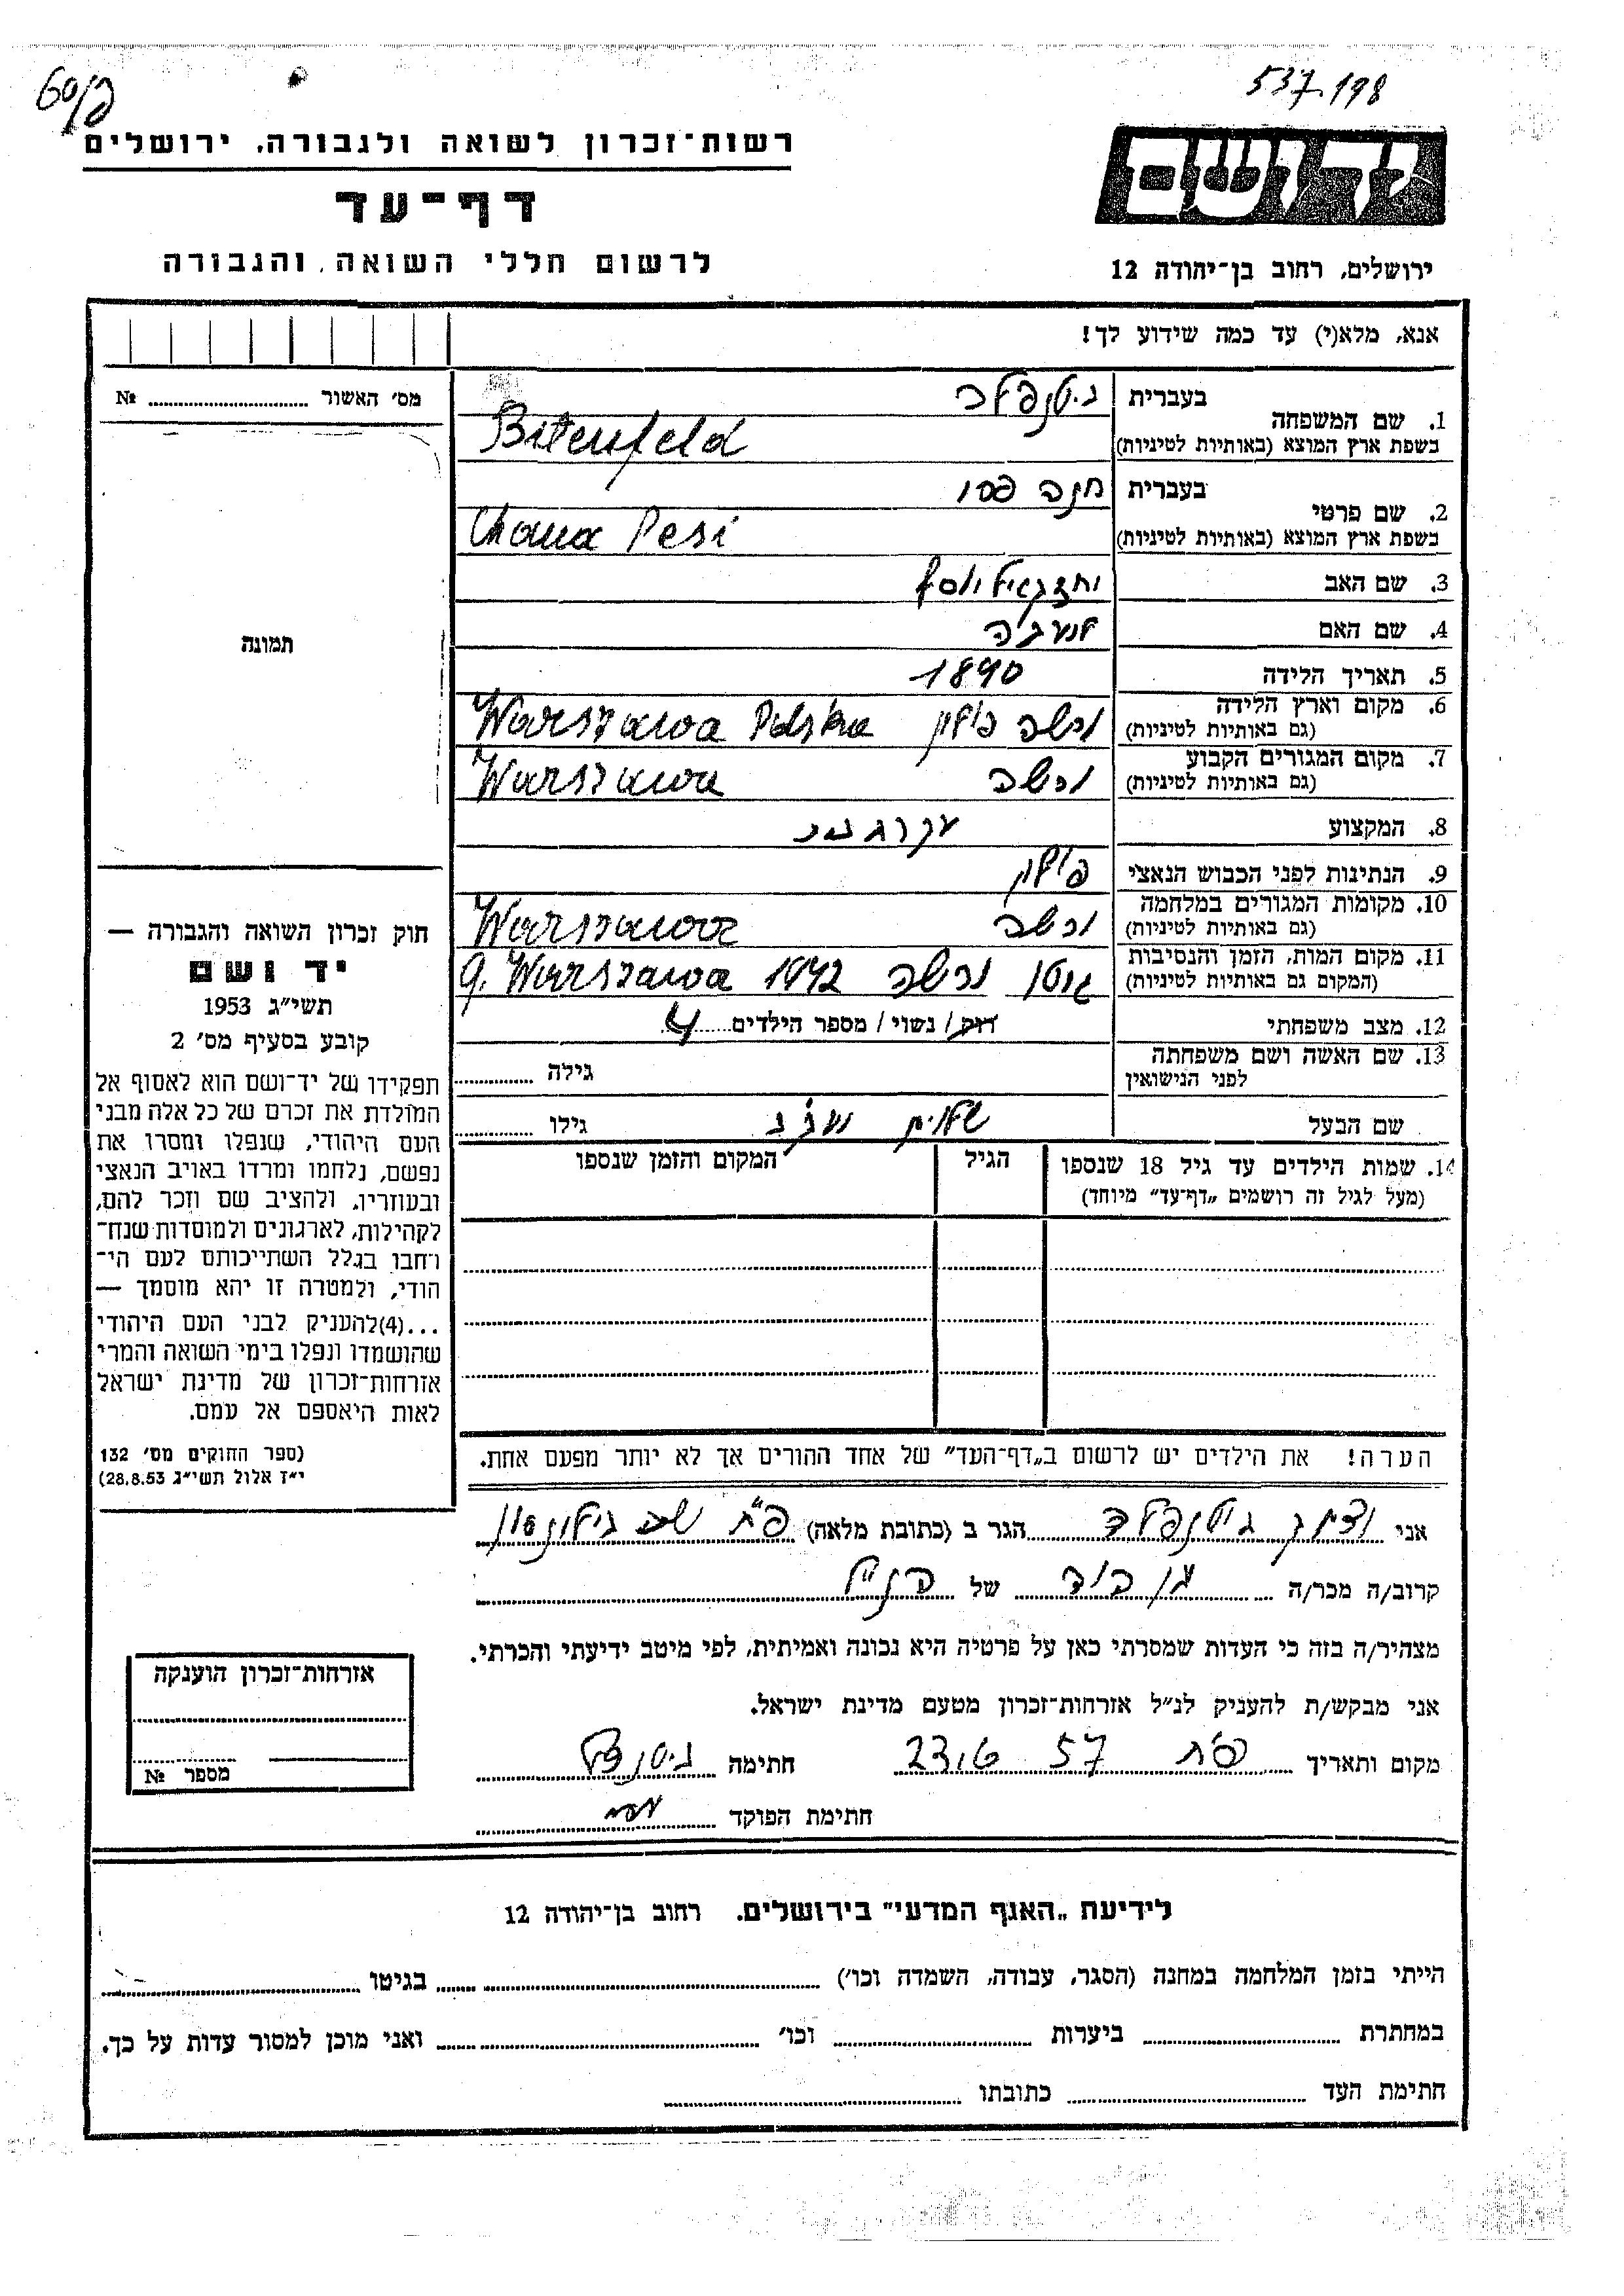 60/פ
537.198
רשות־זכרון לשואה ולגבורה, ירושלים
דף־עד
לרשום חללי השואה והגבורה
יד ושם
ירושלים, רחוב בן־יהודה 12
אנא, מלא(י) עד כמה שידוע לך!
מס׳ האשור № ........
תמונה
1. שם המשפחה
בעברית ביטנפלד
בשפת ארץ המוצא (באותיות לטיניות) Bitenfeld
2. שם פרטי
בעברית חנה פסי
בשפת ארץ המוצא (באותיות לטיניות) Chana Pesi
3. שם האב
4. שם האם
5. תאריך הלידה 1890
6. מקום וארץ הלידה
(גם באותיות לטיניות) ורשה פולין Warszawa Polska
7. מקום המגורים הקבוע
(גם באותיות לטיניות) ורשה Warszawa
8. המקצוע עקרת בית
9. הנתינות לפני הכבוש הנאצי פולין
10. מקומות המגורים במלחמה
(גם באותיות לטיניות) ורשה Warszawa
11. מקום המות, הזמן והנסיבות
(המקום גם באותיות לטיניות) גיטו ורשה 1942 g. Warszawa
12. מצב משפחתי רוק / נשוי / מספר הילדים 4
13. שם האשה ושם משפחתה
לפני הנישואין
גילה ........
שם הבעל
גילו ........
14. שמות הילדים עד גיל 18 שנספו
(מעל לגיל זה רושמים „דף־עד״ מיוחד)
הגיל
המקום והזמן שנספו
הערה! את הילדים יש לרשום ב„דף־העד״ של אחד ההורים אך לא יותר מפעם אחת.
חוק זכרון השואה והגבורה —
יד ושם
תשי״ג 1953
קובע בסעיף מס׳ 2
תפקידו של יד־ושם הוא לאסוף אל
המולדת את זכרם של כל אלה מבני
העם היהודי, שנפלו ומסרו את
נפשם, נלחמו ומרדו באויב הנאצי
ובעוזריו, ולהציב שם וזכר להם,
לקהילות, לארגונים ולמוסדות שנח־
רחבו בגלל השתייכותם לעם הי־
הודי, ולמטרה זו יהא מוסמך —
...(4)להעניק לבני העם היהודי
שהושמדו ונפלו בימי השואה והמרי
אזרחות־זכרון של מדינת ישראל
לאות היאספם אל עמם.
(ספר החוקים מס׳ 132
י״ז אלול תשי״ג 28.8.53)
אני ביטנפלד הגר ב (כתובת מלאה) פ״ת
קרוב/ה מכר/ה של הנ״ל
מצהיר/ה בזה כי העדות שמסרתי כאן על פרטיה היא נכונה ואמיתית, לפי מיטב ידיעתי והכרתי.
אני מבקש/ת להעניק לנ״ל אזרחות־זכרון מטעם מדינת ישראל.
מקום ותאריך פ״ת 57 חתימה
חתימת הפוקד
אזרחות־זכרון הוענקה
מספר №
לידיעת „האגף המדעי״ בירושלים. רחוב בן־יהודה 12
הייתי בזמן המלחמה במחנה (הסגר, עבודה, השמדה וכו׳) ........ בגיטו ........
במחתרת ........ ביערות ........ וכו׳ ........ ואני מוכן למסור עדות על כך.
חתימת העד ........ כתובתו ........